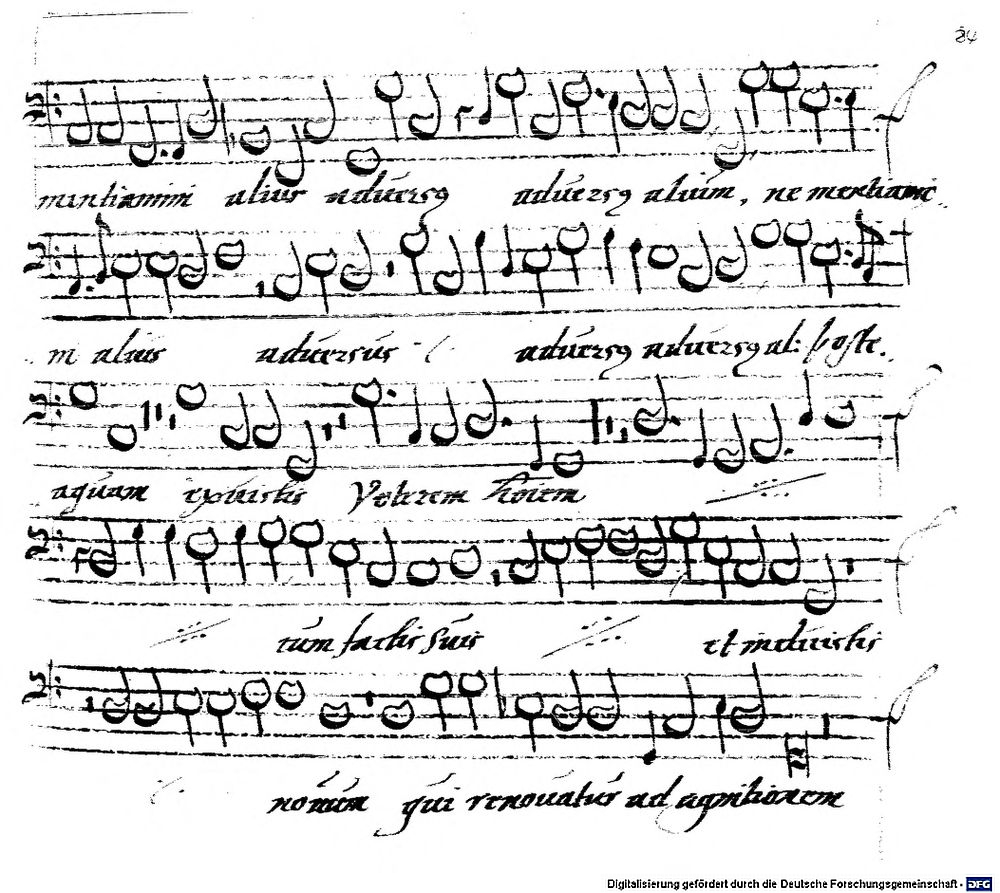 84
mentiamini alius adversꝰ adversꝰ alium, ne mentiami
m alius adversus adversꝰ adversꝰ al: poste
aquam expuistis Veterem hoiem
cum factis suis et induistis
novum qui renovatus ad agnitionem
Digitalisierung gefördert durch die Deutsche Forschungsgemeinschaft - DFG